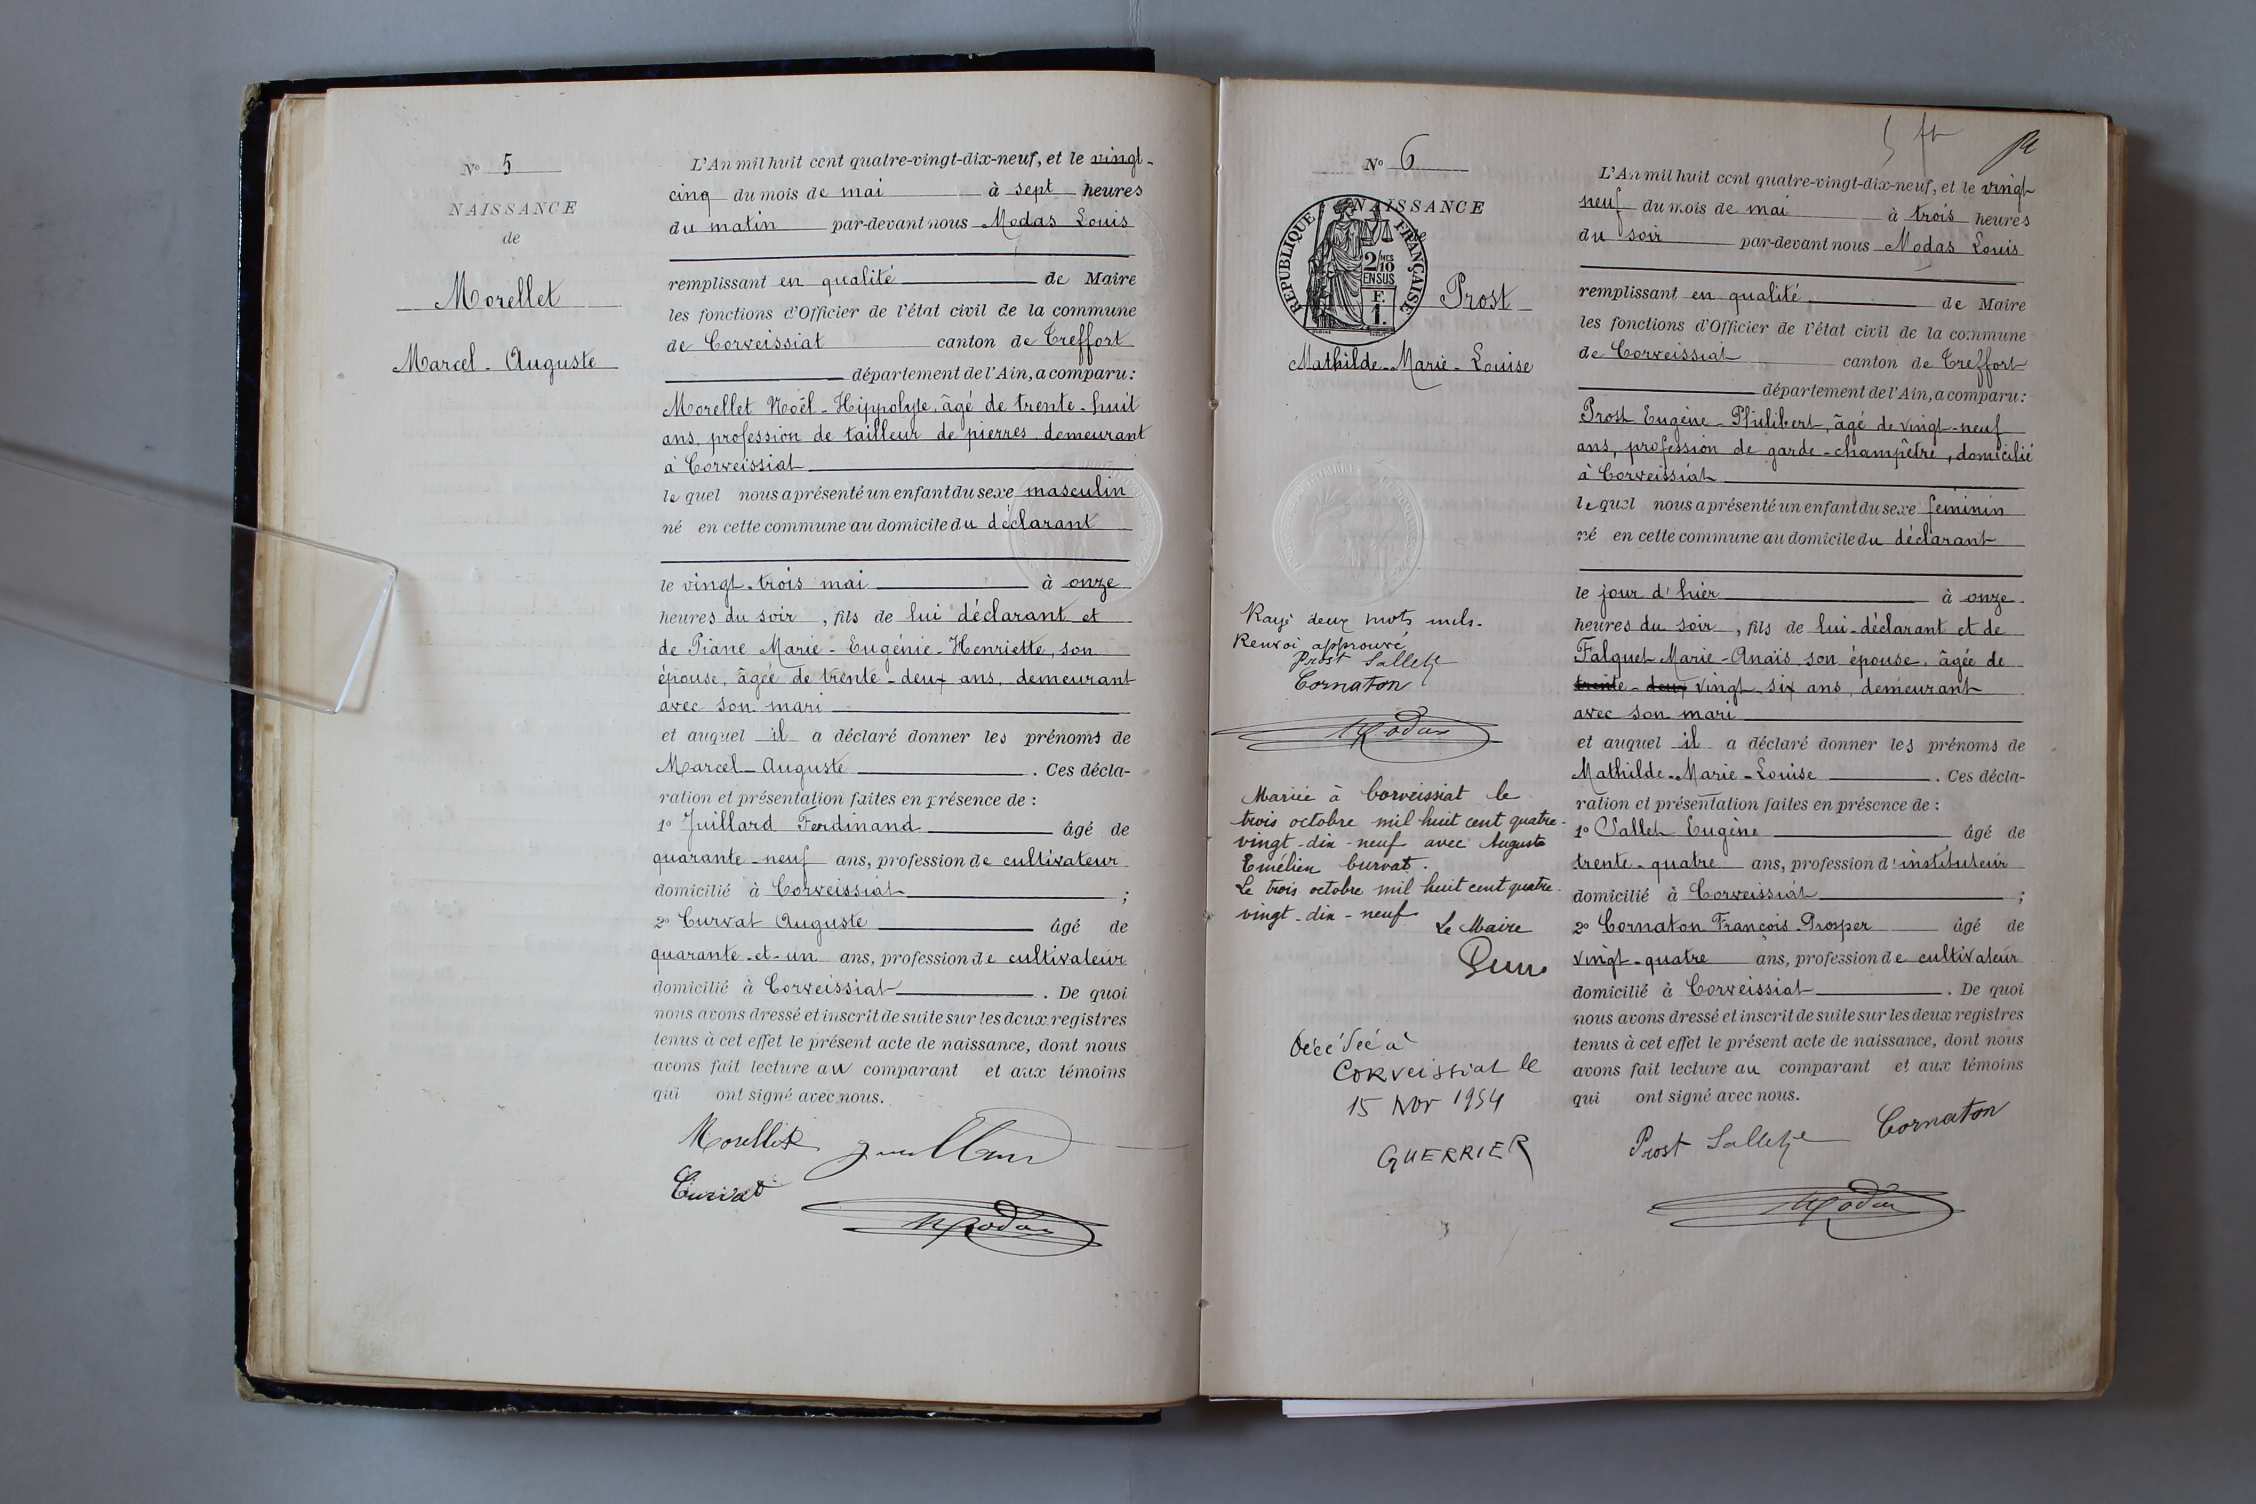 N° 5
NAISSANCE
de
Morellet
Marcel-Auguste
L'An mil huit cent quatre-vingt-dix-neuf, et le vingt-
cinq du mois de mai à sept heures
du matin par-devant nous Modas Louis
remplissant en qualité de Maire
les fonctions d'Officier de l'état civil de la commune
de Corveissiat canton de Treffort
département de l'Ain, a comparu :
Morellet Noël-Hippolyte, âgé de trente-huit
ans, profession de tailleur de pierres demeurant
à Corveissiat
le quel nous a présenté un enfant du sexe masculin
né en cette commune au domicile du déclarant
le vingt-trois mai à onze
heures du soir, fils de lui déclarant et
de Piane Marie-Eugénie-Henriette, son
épouse, âgée de trente-deux ans, demeurant
avec son mari
et auquel il a déclaré donner les prénoms de
Marcel-Auguste. Ces décla-
ration et présentation faites en présence de :
1° Juillard Ferdinand âgé de
quarante-neuf ans, profession de cultivateur
domicilié à Corveissiat ;
2° Curvat Auguste âgé de
quarante-et-un ans, profession de cultivateur
domicilié à Corveissiat. De quoi
nous avons dressé et inscrit de suite sur les deux registres
tenus à cet effet le présent acte de naissance, dont nous
avons fait lecture au comparant et aux témoins
qui ont signé avec nous.
Morellet
Curvat
Modas
N° 6
NAISSANCE
de
REPUBLIQUE FRANÇAISE
2/10
EN SUS
F.
1.
Prost
Mathilde-Marie-Louise
Rayé deux mots nuls.
Renvoi approuvé
Prost Sallet
Cornaton
Modas
Mariée à Corveissiat le
trois octobre mil huit cent quatre-
vingt-dix-neuf avec Auguste
Emélien Curvat.
Le trois octobre mil huit cent quatre-
vingt-dix-neuf
Le Maire
Décédée à
Corveissiat le
15 Nov 1954
GUERRIER
L'An mil huit cent quatre-vingt-dix-neuf, et le vingt-
neuf du mois de mai à trois heures
du soir par-devant nous Modas Louis
remplissant en qualité de Maire
les fonctions d'Officier de l'état civil de la commune
de Corveissiat canton de Treffort
département de l'Ain, a comparu :
Prost Eugène-Philibert, âgé de vingt-neuf
ans, profession de garde-champêtre, domicilié
à Corveissiat
le quel nous a présenté un enfant du sexe féminin
né en cette commune au domicile du déclarant
le jour d'hier à onze
heures du soir, fils de lui-déclarant et de
Falquet Marie-Anaïs son épouse, âgée de
trente-deux vingt-six ans, demeurant
avec son mari
et auquel il a déclaré donner les prénoms de
Mathilde-Marie-Louise. Ces décla-
ration et présentation faites en présence de :
1° Sallet Eugène âgé de
trente-quatre ans, profession d'instituteur
domicilié à Corveissiat ;
2° Cornaton François-Prosper âgé de
vingt-quatre ans, profession de cultivateur
domicilié à Corveissiat. De quoi
nous avons dressé et inscrit de suite sur les deux registres
tenus à cet effet le présent acte de naissance, dont nous
avons fait lecture au comparant et aux témoins
qui ont signé avec nous.
Prost Sallet Cornaton
Modas